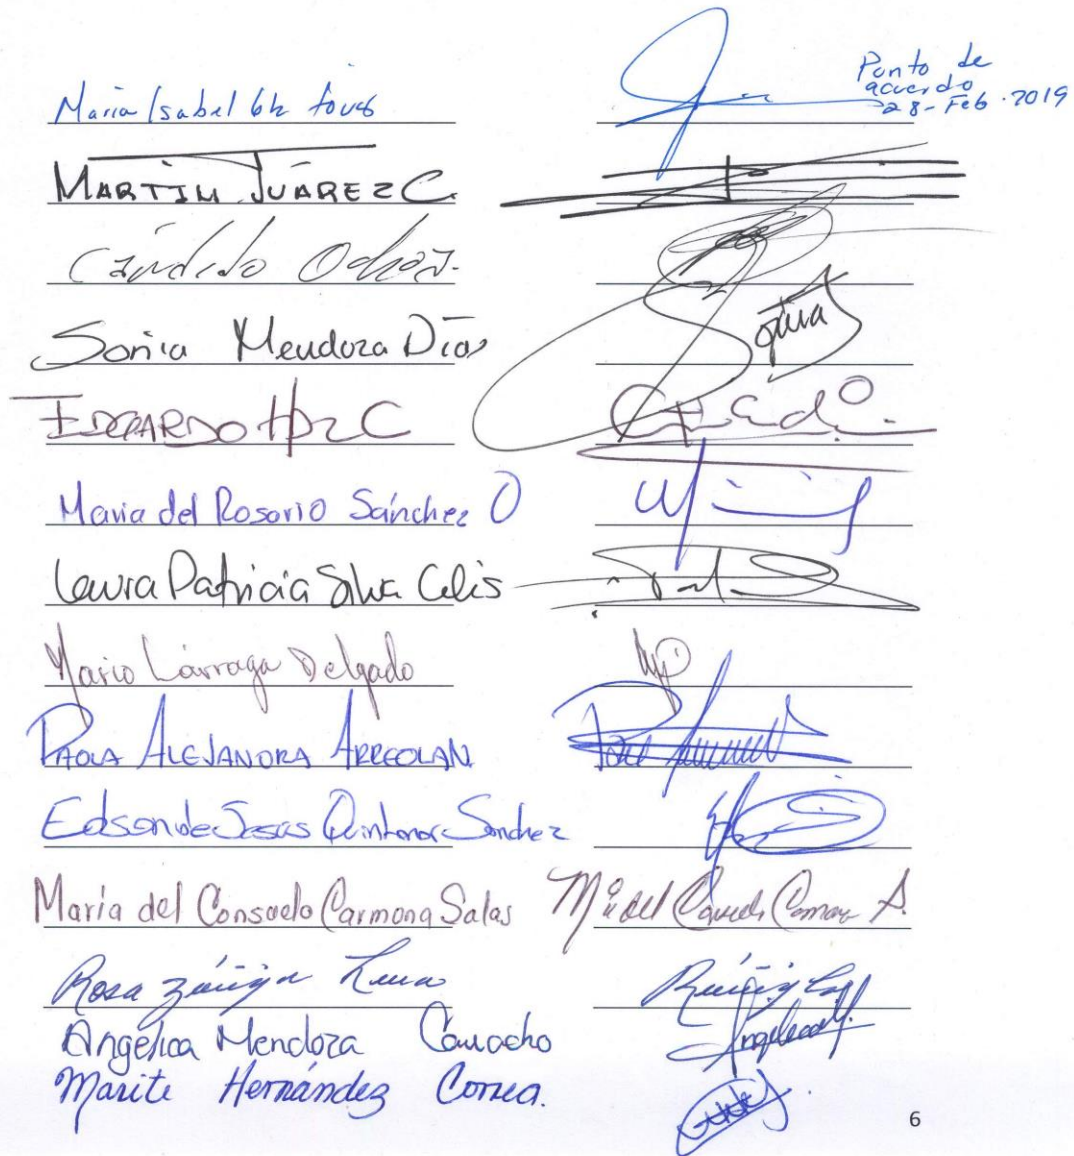 Maria Isabel Glz Tovar
Punto de
acuerdo
28-Feb-2019
MARTIN JUÁREZ C.
Cándido Ochoa
Sonia Mendoza Díaz
Sonia
EDGARDO HDZ C
María del Rosario Sánchez O
Laura Patricia Silva Celis
Mario Lárraga Delgado
PAOLA ALEJANDRA ARREOLA N.
Edson de Jesús Quintanar Sánchez
María del Consuelo Carmona Salas
Rosa Zúñiga Luna
Angélica Mendoza Camacho
Marite Hernández Correa.
6